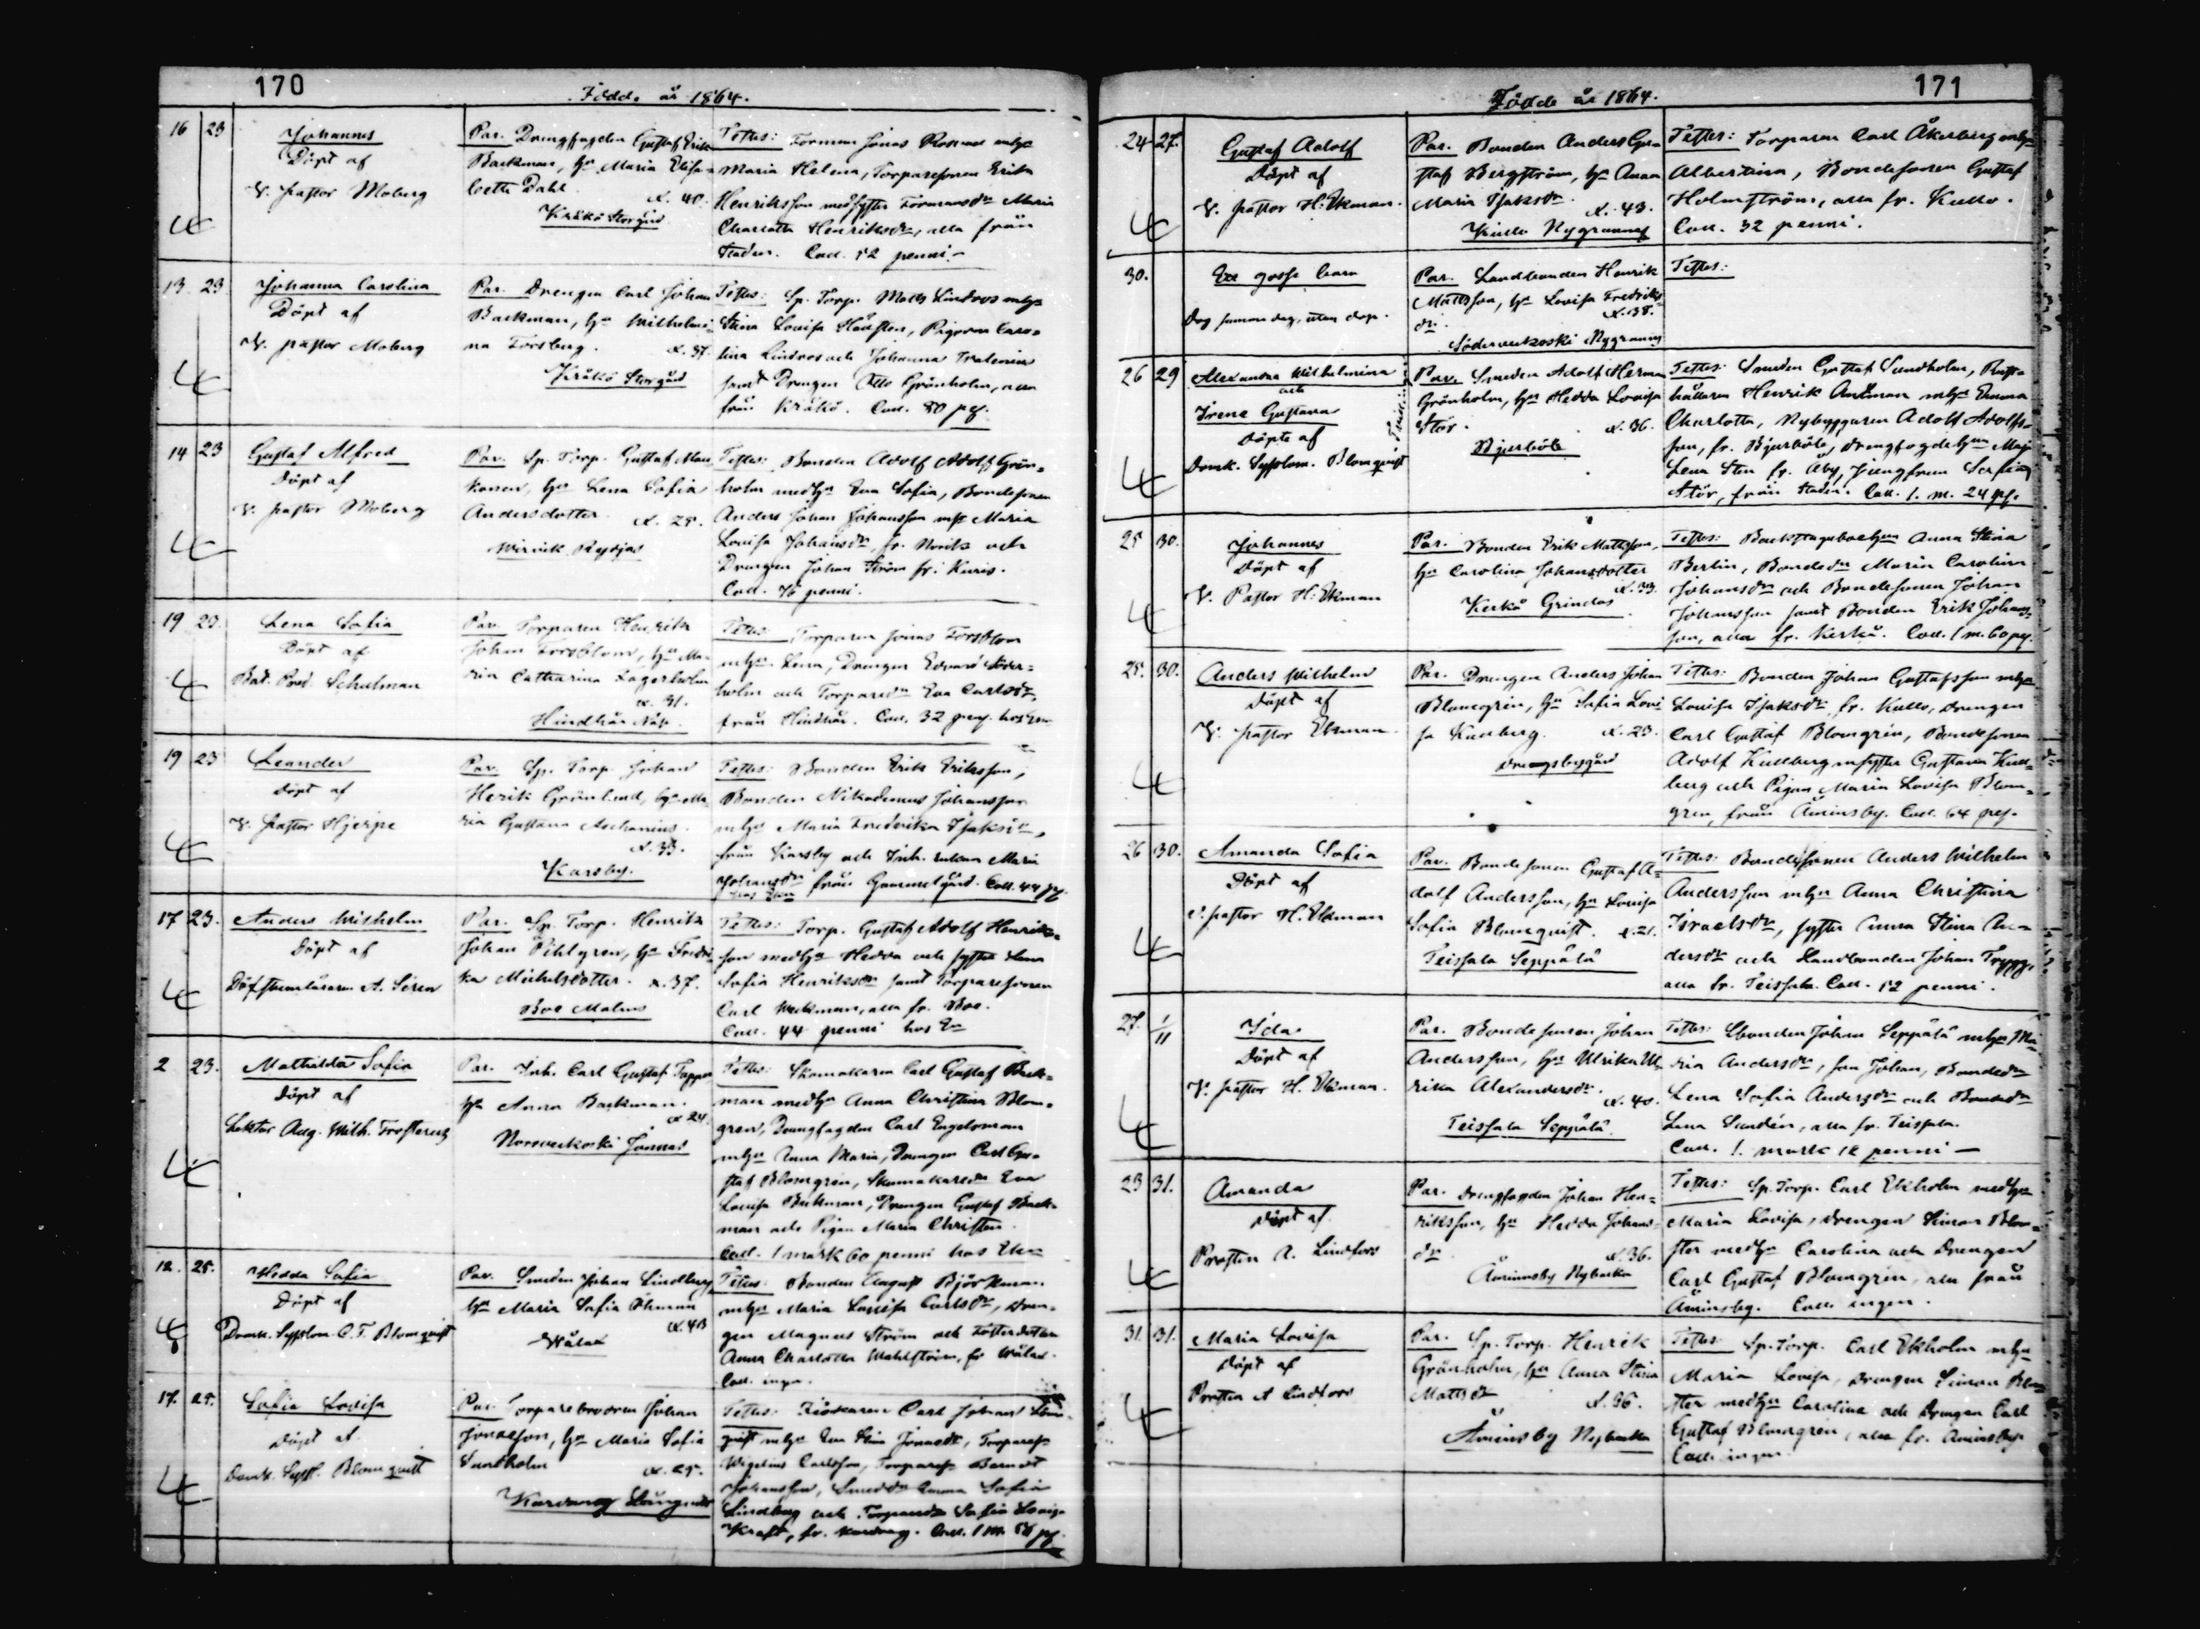 170
Födde år 1864.
16 23
Johannes
Döpt af
V. pastor Moberg
Par. Drengfogden Gustaf Erik
Backman, hu Maria Elisa=
beth Dahl.
x. 40.
Kråkö Storgård
Testes: Forman Jonas Roswall mhu
Maria Helena, Torparesonen Erik
Henriksson med syster Formansdr Maria
Charlotta Henriksdr, alla från
staden. Coll. 52 penni.
13. 23.
Johanna Carolina
Döpt af
V. pastor Moberg
Par. Drengen Carl Johan
Backman, hu Wilhelmi=
na Forsberg.
x. 37.
Kråkö Storgård
Testes: Sp. Torp. Matts Lindroos mhu
Stina Lovisa, Pigorna Caro=
lina Lindroos och Johanna
samt Drengen Otto Grönholm, alla
från Kråkö. Coll. 80 pg.
14 23
Gustaf Alfred
Döpt af
V. pastor Moberg
Par. Sp. Torp. Gustaf Mau
konen, hu Lena Sofia
Andersdotter.
x. 25.
Testes: Bonden Adolf Adolf Grön=
holm med hu Eva Sofia, Bondesonen
Anders Johan Johansson mhu Maria
Lovisa Johansdr, fr. och
Drengen Johan Ström fr. Kuris.
Coll. 76 penni.
19 23.
Lena Sofia
Döpt af
Bat. Pred. Schulman
Par. Torparen Henrik
Johan Forsblom, hu Ma=
ria Catharina Lagerholm
x. 31.
Hindhår Näse.
Testes: Torparen Jonas Forsblom
mhu Lena, Drengen Edvard Söder=
holm och Torparedr Eva Carlsdr,
från Hindhår. Coll. 32 peng. hos
19 23
Leander
Döpt af
V. pastor Hjerpe
Par. Sp. Torp. Johan
Herik Grönlund, hu Ma
ria Gustava Aschanius.
x. 33.
Karsby.
Testes: Bonden Erik Eriksson,
Bonden Nikodemus Johansson
mhu Maria Fredrika Isaksdr,
från Karsby och Inh. enkan Maria
Johansdr från Gammelgård. Coll. 44 pg.
17 23.
Anders Wilhelm
Döpt af
Döfstumläraren A. Sirén
Par. Sp. Torp. Henrik
Johan Pihlgren, hu Fredri
ka Michelsdotter. x. 37.
Boe Malms
Testes: Torp. Gustaf Adolf Henriks=
son med hu Hedda och syster Lena
Sofia Henriksdr samt Torparesonen
Carl Weckman, alla fr. Boe.
Coll. 44 penni hos
2 23.
Mathilda Sofia
Döpt af
Lektor Aug. Wilh. Frosterus
Par. Inh. Carl Gustaf
hu Anna Backman.
x 24.
Norrveckoski Jönnas
Testes: Skomakaren Carl Gustaf Back=
man med hu Anna Christina Blom=
gren, Drengfogden Carl Engelsman
mhu Anna Maria, Drengen Carl Gu=
staf Blomgren, Skomakaredr Eva
Lovisa Backman, Drengen Gustaf Back=
man och Pigan Maria Christin
Coll. 1 mark 60 penni hos
12. 25.
Hedda Sofia
Döpt af
Domk. Sysslom. C. F. Blomqvist
Par. Smeden Johan Lindberg
hu Maria Sofia Öhman
x. 43
Wålax
Testes: Bonden August Björkman
mhu Maria Lovisa Carlsdr, Dren=
gen Magnus Ström och Fosterdottern
Anna Charlotta Wahlström, fr Wålax.
Coll. ingen.
17. 25.
Sofia Lovisa
Döpt af
Domk. Syssl. Blomqvist
Par. Torparebrodren Johan
Jonasson, hu Maria Sofia
Sundholm
x. 25.
Testes: Fiskaren Carl Johan
qvist mhu Eva Stina Jonasdr, Torpares
Wigelius Carlsson, Torpares Berndt
Johansson, Smeddr Emma Sofia
Lindberg och Torparedr Sofia Lovisa
Kraft, fr. Kardrag. Coll. 1 m. 56 pg.
171
Födde år 1864.
24 27.
Gustaf Adolf
Döpt af
V. pastor H. Ekman.
Par. Bonden Anders Gu=
staf Bergström, hu Anna
Maria Isaksdr.
x. 43.
Kullo Nygrannas
Testes: Torparen Carl Åkerberg mhu
Albertina, Bondesonen Gustaf
Holmström, alla fr. Kullo.
Coll. 32 penni.
30.
Ett gosse barn
Dog samma dag, utan dop.
Par. Landbonden Henrik
Mattsson, hu Lovisa Fredriks
dr.
x. 38.
Söderveckoski Nygrannas
Testes:
26 29
Alexandra Wilhelmina
och
Irene Gustava
Döpte af
Domk. Sysslom. Blomqvist
Par. Smeden Adolf Herman
Grönholm, hu Hedda Lovisa
Stör.
x. 36.
Bjurböle
Testes: Smeden Gustaf Sundholm, Rust=
hållaren Henrik Antman mhu Emma
Charlotta, Nybyggaren Adolf Adolfs=
son, fr. Bjurböle, Drengfogdehun Maja
Lena Sten fr. Åby, Jungfrun Serafina
Stör, från staden. Coll. 1. m. 24 pg.
25 30.
Johannes
Döpt af
V. Pastor H. Ekman
Par. Bonden Erik Mattsson,
hu Carolina Johansdotter
x. 33.
Kerkö Grindas
Testes: Anna Stina
Berlin, Bondedr Maria Carolina
Johansdr och Bondesonen Johan
Johansson samt Bonden Erik Johans=
son, alla fr. Kerkö. Coll. 1 m. 60 pg.
25. 30.
Anders Wilhelm
Döpt af
V. pastor Ekman
Par. Drengen Anders Johan
Blomgrén, hu Sofia Lovi
sa Kullberg.
x. 23.
Drengsbygård
Testes: Bonden Johan Gustafsson mhu
Lovisa Isaksdr fr. Kullo, Drengen
Carl Gustaf Blomgrén, Bondesonen
Adolf Kullberg m syster Gustava Kull=
berg och Pigan Maria Lovisa Blom=
gren, från Äminsby. Coll. 64 peg.
26 30.
Amanda Sofia
Döpt af
V. pastor H. Ekman
Par. Bondesonen Gustaf A=
dolf Andersson, hu Lovisa
Sofia Blomqvist. x. 21.
Teissala Seppälä
Testes: Bondesonen Anders Wilhelm
Andersson mhu Anna Christina
Israelsdr, syster Anna Stina An=
dersdr och Landbonden Johan Trygg,
alla fr. Teissala. Coll. 52 penni.
27. 1/11
Ida
Döpt af
V. pastor H. Ekman.
Par. Bondesonen Johan
Andersson, hu Ulrika Ul
rika Alexandersdr.
x. 40.
Teissala Seppälä.
Testes: Lbonden Johan Seppälä mhu Ma
ria Andersdr, son Johan, Bondedr
Lena Sofia Andersdr och Bondedr
Lena Sundén, alla fr. Teissala.
Coll. 1. mark 12 penni —
23 31.
Amanda
Döpt af
Prosten A. Lindfors
Par. Drengfogden Johan Hen=
riksson, hu Hedda Johans=
dr
x. 36.
Äminsby Nybacka
Testes: Sp. Torp. Carl Ekholm med hu
Maria Lovisa, Drengen Simon Blom=
ster med hu Carolina och Drengen
Carl Gustaf Blomgrén, alla från
Äminsby. Coll. ingen.
31. 31.
Maria Lovisa
Döpt af
Prosten A Lindfors
Par. Sp. Torp. Henrik
Grönholm, hu Anna Stina
Mattsdr
x. 36.
Äminsby Nybacka
Testes: Sp. Torp. Carl Ekholm mhu
Maria Lovisa, Drengen Simon Blom
ster med hu Carolina och Drengen Carl
Gustaf Blomgrén, alla fr. Äminsby.
Coll. ingen.